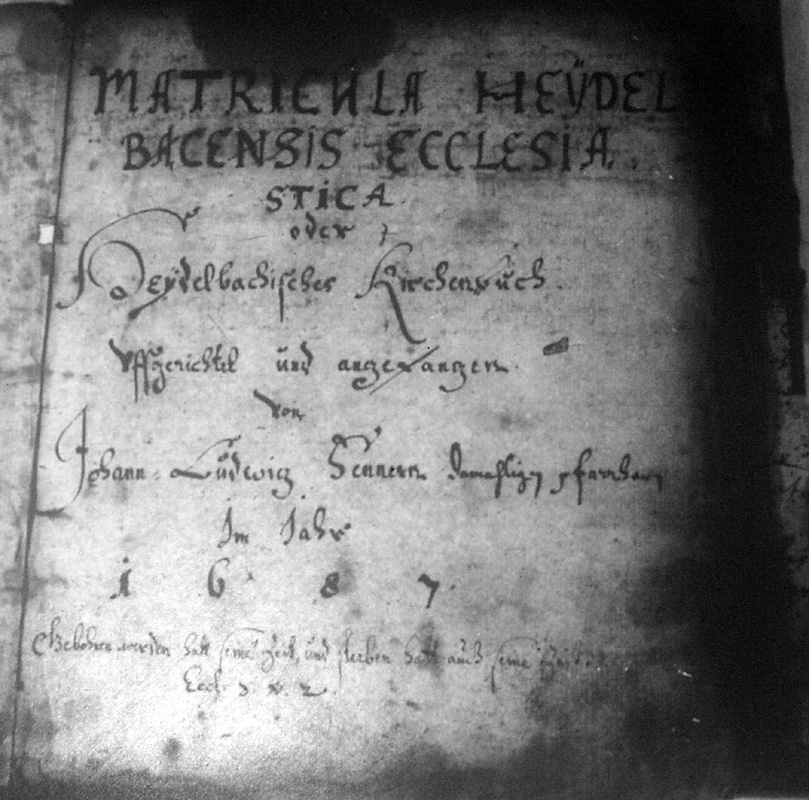 MATRICULA HEŸDEL
BACENSIS ECCLESIA.
STICA.
oder
Heÿdelbachisches Kirchenbuch.
Vffgerichtet und angefangen
Von
Johann Ludewig Sennern damahligen pfarrherrn
Im Jahr
1 6 8 7.
Gebohren werden hatt seine Zeit, und sterben hatt auch seine Zeit.
Eccl. 3 v. 2